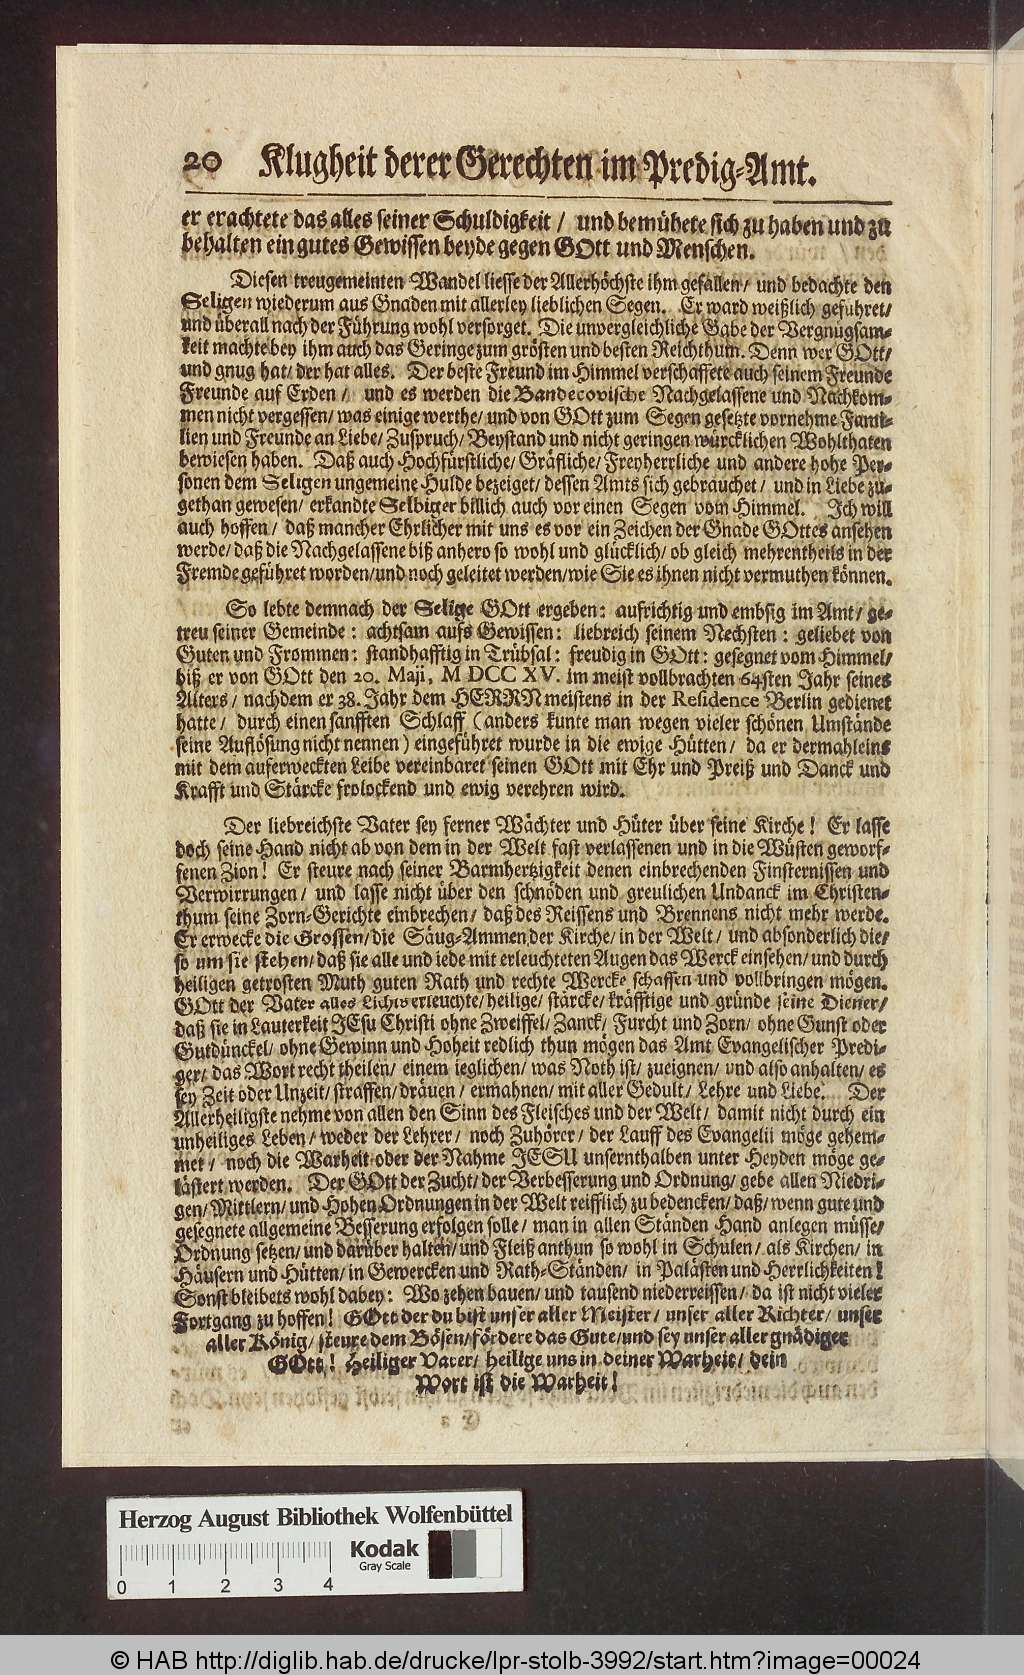 20 Klugheit derer Gerechten im Predig-Amt.
er erachtete das alles seiner Schuldigkeit / und bemühete sich zu haben und zu
behalten ein gutes Gewissen beyde gegen GOtt und Menschen.
Diesen treugemeinten Wandel liesse der Allerhöchste ihm gefallen / und bedachte den
Seligen wiederum aus Gnaden mit allerley lieblichen Segen. Er ward weißlich geführet/
und überall nach der Führung wohl versorget. Die unvergleichliche Gabe der Vergnügsam-
keit machte bey ihm auch das Geringe zum grösten und besten Reichthum. Denn wer GOtt/
und gnug hat/ der hat alles. Der beste Freund im Himmel verschaffete auch seinem Freunde
Freunde auf Erden / und es werden die Bandecovische Nachgelassene und Nachkom-
men nicht vergessen/ was einige werthe/ und von GOtt zum Segen gesetzte vornehme Fami-
lien und Freunde an Liebe/ Zuspruch/ Beystand und nicht geringen würcklichen Wohlthaten
bewiesen haben. Daß auch Hochfürstliche/ Gräfliche/ Freyherrliche und andere hohe Per-
sonen dem Seligen ungemeine Hulde bezeiget/ dessen Amts sich gebrauchet/ und in Liebe zu-
gethan gewesen/ erkandte Selbiger billich auch vor einen Segen vom Himmel. Ich will
auch hoffen / daß mancher Ehrlicher mit uns es vor ein Zeichen der Gnade GOttes ansehen
werde/ daß die Nachgelassene biß anhero so wohl und glücklich/ ob gleich mehrentheils in der
Fremde geführet worden/ und noch geleitet werden/ wie Sie es ihnen nicht vermuthen können.
So lebte demnach der Selige GOtt ergeben: aufrichtig und embsig im Amt/ ge-
treu seiner Gemeinde: achtsam aufs Gewissen: liebreich seinem Nechsten: geliebet von
Guten und Frommen: standhafftig in Trübsal: freudig in GOtt: gesegnet vom Himmel/
biß er von GOtt den 20. Maji, M DCC XV. im meist vollbrachten 64sten Jahr seines
Alters / nachdem er 38. Jahr dem HERRN meistens in der Residence Berlin gedienet
hatte/ durch einen sanfften Schlaff (anders kunte man wegen vieler schönen Umstände
seine Auflösung nicht nennen) eingeführet wurde in die ewige Hütten/ da er dermahleins
mit dem auferweckten Leibe vereinbaret seinen GOtt mit Ehr und Preiß und Danck und
Krafft und Stärcke frolockend und ewig verehren wird.
Der liebreichste Vater sey ferner Wächter und Hüter über seine Kirche! Er lasse
doch seine Hand nicht ab von dem in der Welt fast verlassenen und in die Wüsten geworf-
fenen Zion! Er steure nach seiner Barmhertzigkeit denen einbrechenden Finsternissen und
Verwirrungen/ und lasse nicht über den schnöden und greulichen Undanck im Christen-
thum seine Zorn-Gerichte einbrechen/ daß des Reissens und Brennens nicht mehr werde.
Er erwecke die Grossen/ die Säug-Ammen der Kirche/ in der Welt / und absonderlich die/
so um sie stehen/ daß sie alle und iede mit erleuchteten Augen das Werck einsehen/ und durch
heiligen getrosten Muth guten Rath und rechte Wercke schaffen und vollbringen mögen.
GOtt der Vater alles Lichts erleuchte/ heilige/ stärcke/ kräfftige und gründe seine Diener/
daß sie in Lauterkeit JEsu Christi ohne Zweiffel/ Zanck/ Furcht und Zorn/ ohne Gunst oder
Gutdünckel/ ohne Gewinn und Hoheit redlich thun mögen das Amt Evangelischer Predi-
ger/ das Wort recht theilen/ einem ieglichen/ was Noth ist/ zueignen/ und also anhalten/ es
sey Zeit oder Unzeit/ straffen/ dräuen/ ermahnen/ mit aller Gedult/ Lehre und Liebe. Der
Allerheiligste nehme von allen den Sinn des Fleisches und der Welt/ damit nicht durch ein
unheiliges Leben/ weder der Lehrer/ noch Zuhörer/ der Lauff des Evangelii möge gehem-
met/ noch die Warheit oder der Nahme JESU unsernthalben unter Heyden möge ge-
lästert werden. Der GOtt der Zucht/ der Verbesserung und Ordnung/ gebe allen Niedri-
gen/ Mittlern/ und Hohen Ordnungen in der Welt reifflich zu bedencken/ daß/ wenn gute und
gesegnete allgemeine Besserung erfolgen solle/ man in allen Ständen Hand anlegen müsse/
Ordnung setzen/ und darüber halten/ und Fleiß anthun so wohl in Schulen/ als Kirchen/ in
Häusern und Hütten/ in Gewercken und Rath-Ständen/ in Palästen und Herrlichkeiten!
Sonst bleibets wohl dabey: Wo zehen bauen/ und tausend niederreissen/ da ist nicht vieler
Fortgang zu hoffen! GOtt der du bist unser aller Meister/ unser aller Richter/ unser
aller König/ steure dem Bösen/ fördere das Gute/ und sey unser aller gnädiger
GOtt! Heiliger Vater/ heilige uns in deiner Warheit/ dein
Wort ist die Warheit!
Herzog August Bibliothek Wolfenbüttel
Kodak
Gray Scale
0 1 2 3 4
© HAB http://diglib.hab.de/drucke/lpr-stolb-3992/start.htm?image=00024